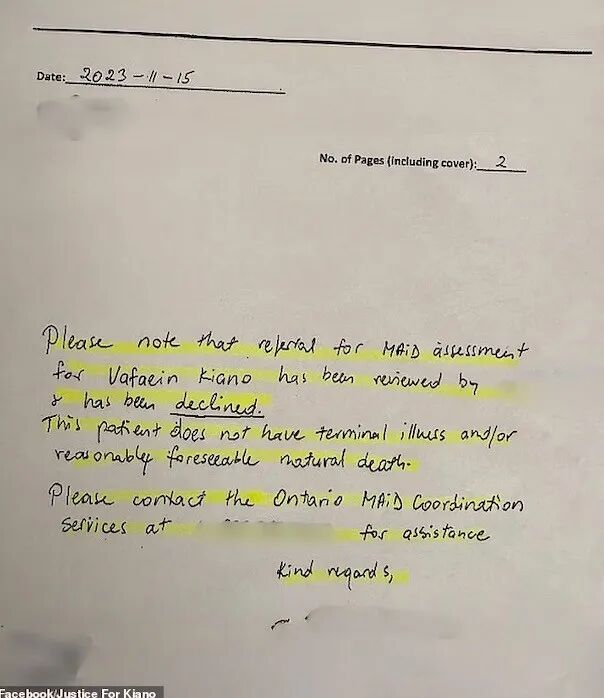 Date: 2023-11-15
No. of Pages (including cover): 2
Please note that referral for MAiD assessment
for Vafaein Kiano has been reviewed by
& has been declined.
This patient does not have terminal illness and/or
reasonably foreseeable natural death.
Please contact the Ontario MAiD Coordination
Services at for assistance
Kind regards,
Facebook/Justice For Kiano